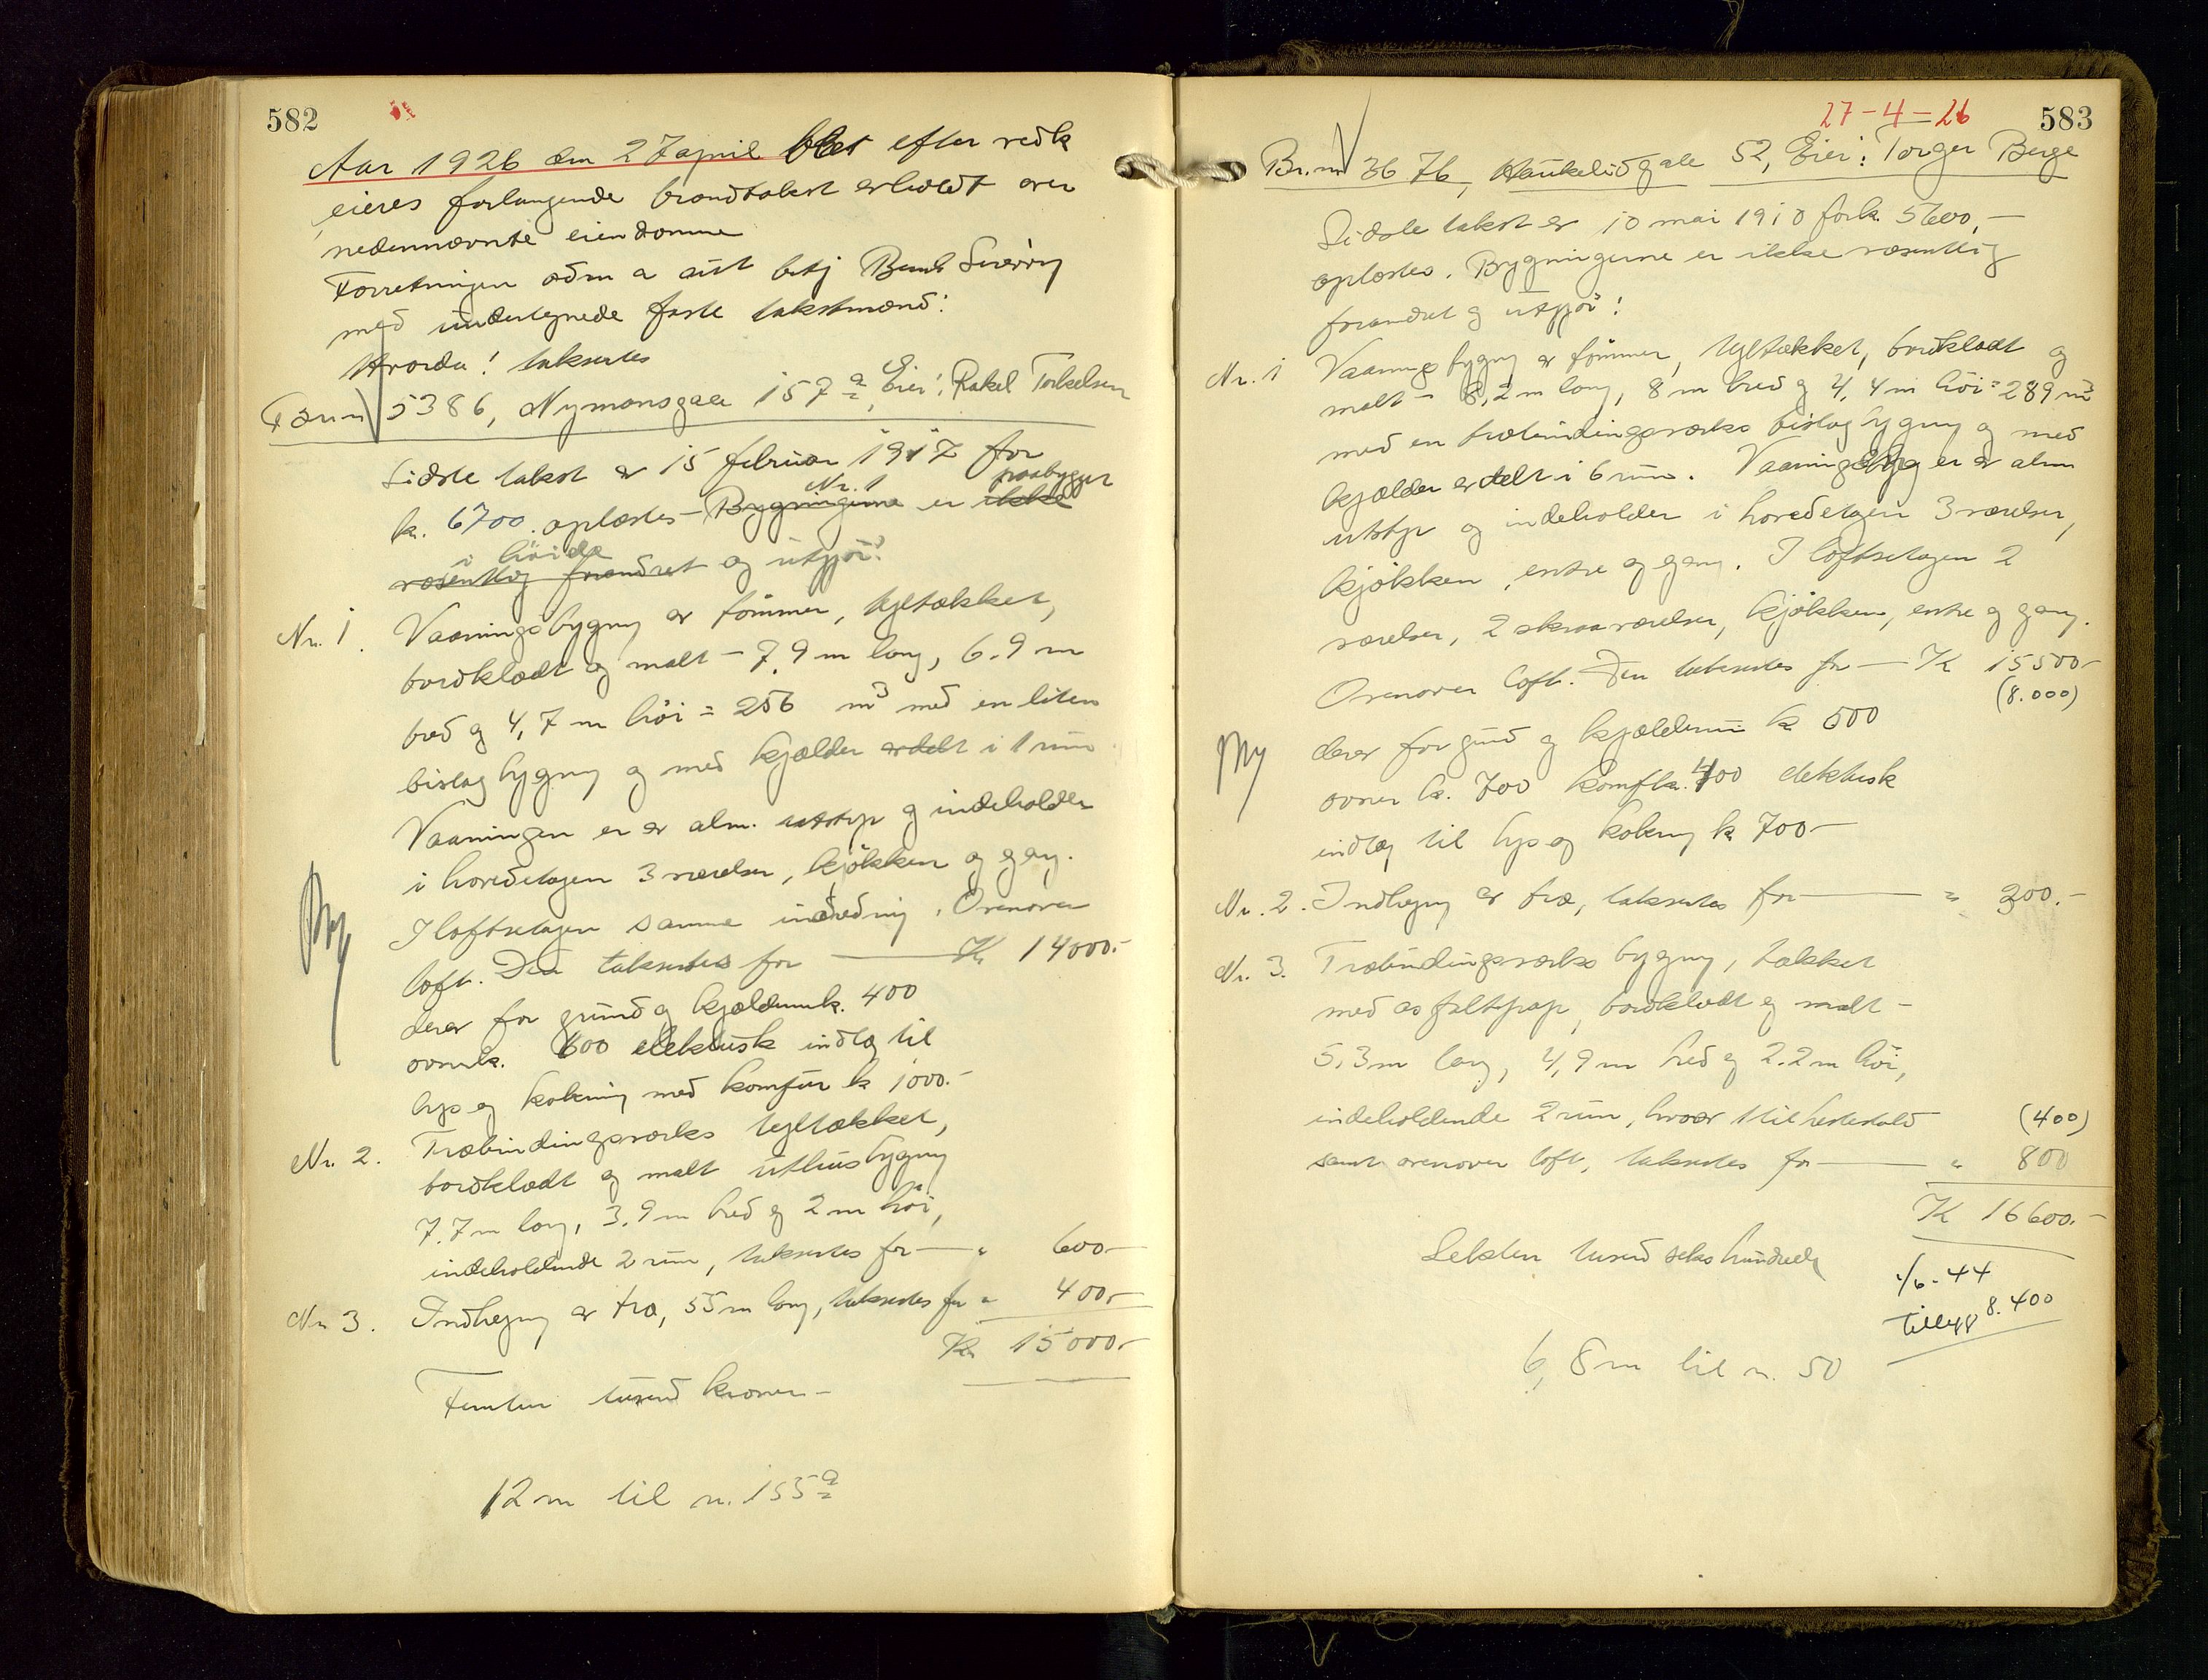 582
Aar 1926 den 27 april blev efter vedk
eieres forlangende brandtakst avholdt over
nedennævnte eiendomme
Forretningen adm a ast betj Bernh
med undertegnede faste takstmænd:
Hvorda! takseres
5386, Nymansgate 157a, Eier: Rakel Torkelsen
Sidste takst er 15 februar 1917 for
Nr. 1 paabygget
kr. 6700. oplæstes - Bygningerne er ikke
i höide
væsentlig forandret og utgjör:
Nr. 1. Vaaningsbygng av tömmer, tegltækket,
bordklædt og malt - 7,9 m lang, 6.9 m
bred og 4,7 m höi = 256 m3 med en liten
bislagbygng og med kjælder avdelt i 1 rum
Vaaningen er av alm. utstyr og indeholder
i hovedetagen 3 værelser, kjökken og gang.
I loftsetagen samme indredning. Ovenover
loft. Den takseres for — Kr 14000.-
derav for grund og kjælderrum k. 400
ovner k. 600 elektrisk indlæg til
lys og kokning med komfur k 1000.-
Nr. 2. Træbindingsverks tegltækket,
bordklædt og malt uthusbygng
7.7 m lang, 3.9 m bred og 2 m höi,
indeholdende 2 rum, takseres for — " 600 -
Nr 3. Indhegng av træ, 55 m lang, takseres for " 400 -
Kr 15000 -
Femten tusend kroner -
12 m til n. 155a
27-4-26
583
Br. nr 3676, Haukelidgate 52, Eier: Torger Berge
Sidste takst er 10 mai 1910 for k. 5600,-
oplæstes. Bygningerne er ikke væsentlig
forandret og utgjör:
Nr. 1 Vaaningsbygng av tömmer, tegltækket, bordklædt og
malt - 8,2 m lang, 8 m bred og 4,4 m höi = 289 m3
med en træbindingsverks bislagbygng og med
kjælder avdelt i 6 rum. Vaaningsbyg er av alm
utstyr og indeholder i hovedetagen 3 værelser,
kjökken, entre og gang. I loftsetagen 2
værelser, 2 skraaværelser, kjökken, entre og gang.
Ovenover loft. Den takseres for — K 15500-
(8.000)
derav for grund og kjælderrum k 500
ovner k. 700 komf k. 400 elektrisk
indlæg til lys og kokng k 700 -
Nr. 2. Indhegng av træ, takseres for — " 300.-
Nr. 3. Træbindingsverks bygng, tækket
med asfaltpap, bordklædt og malt -
5,3 m lang, 4,9 m bred og 2.2 m höi,
indeholdende 2 rum, hvorav 1 til hestestald (400)
samt ovenover loft, takseres for — " 800
K 16600.-
Seksten tusend seks hundrede
1/6-44
Tillegg 8.400
6,8 m til n. 50